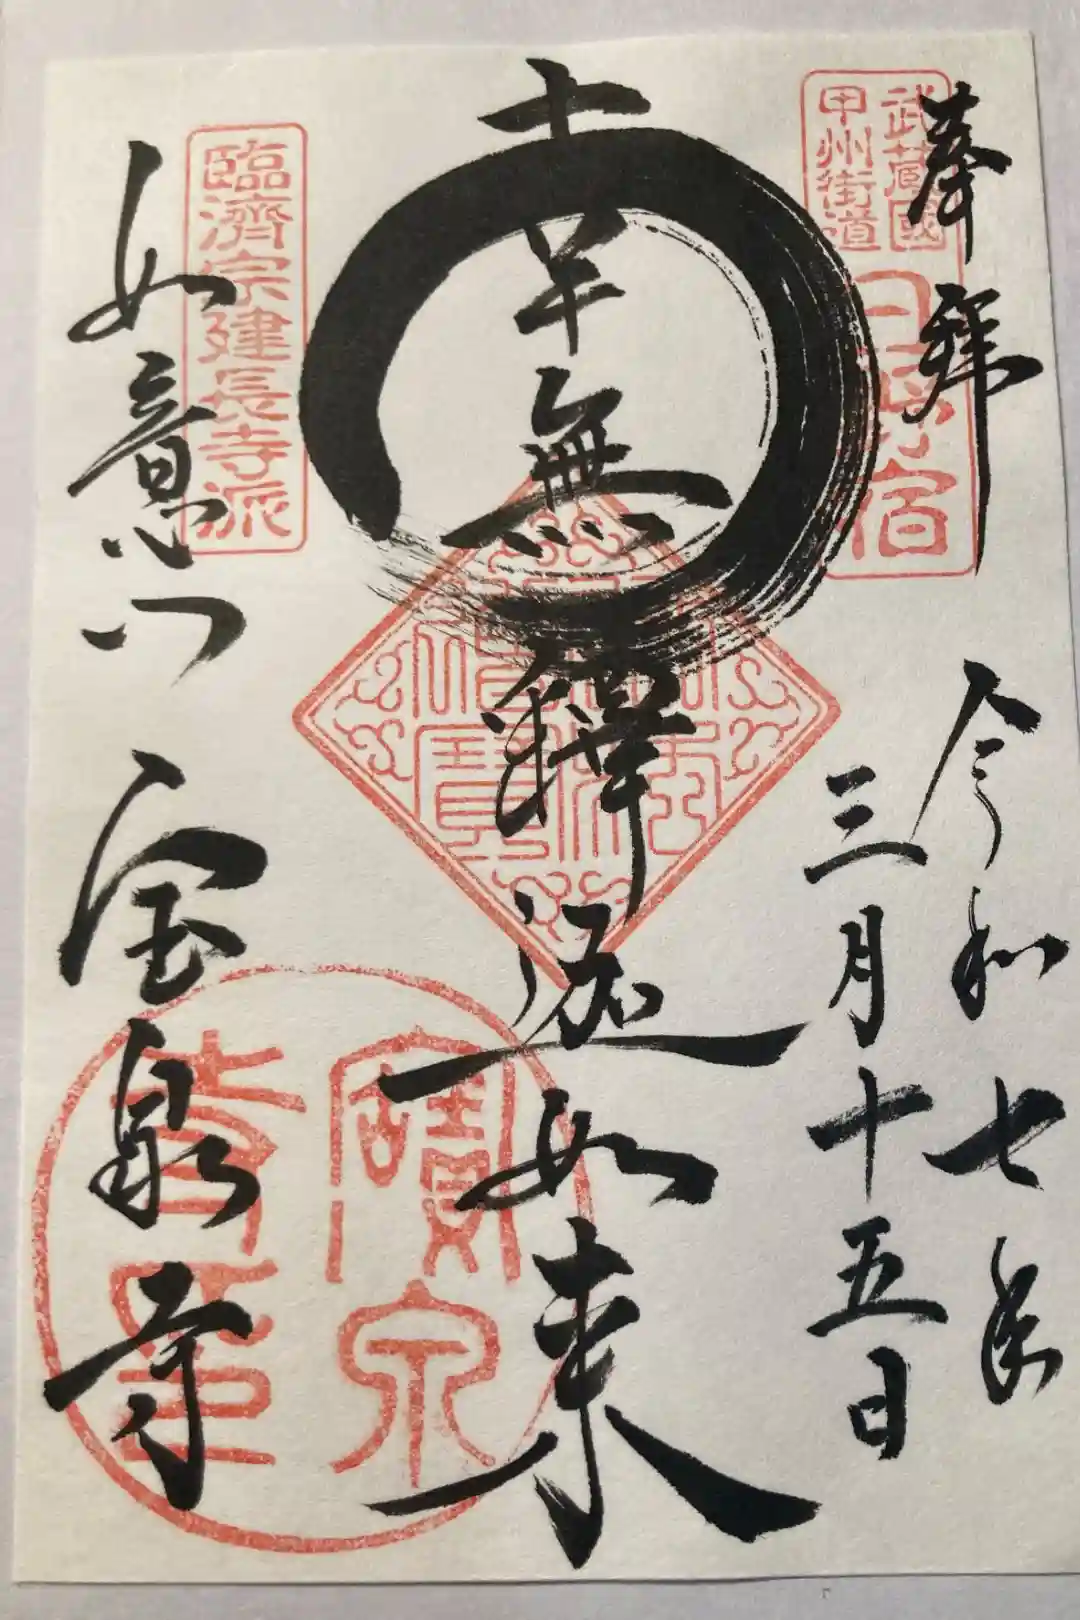 奉拜
武藏國
甲州街道
日野宿
令和七年
三月十五日
南無釋迦如来
佛法僧寶
臨濟宗建長寺派
如意山
宝泉寺
寶泉
寺印